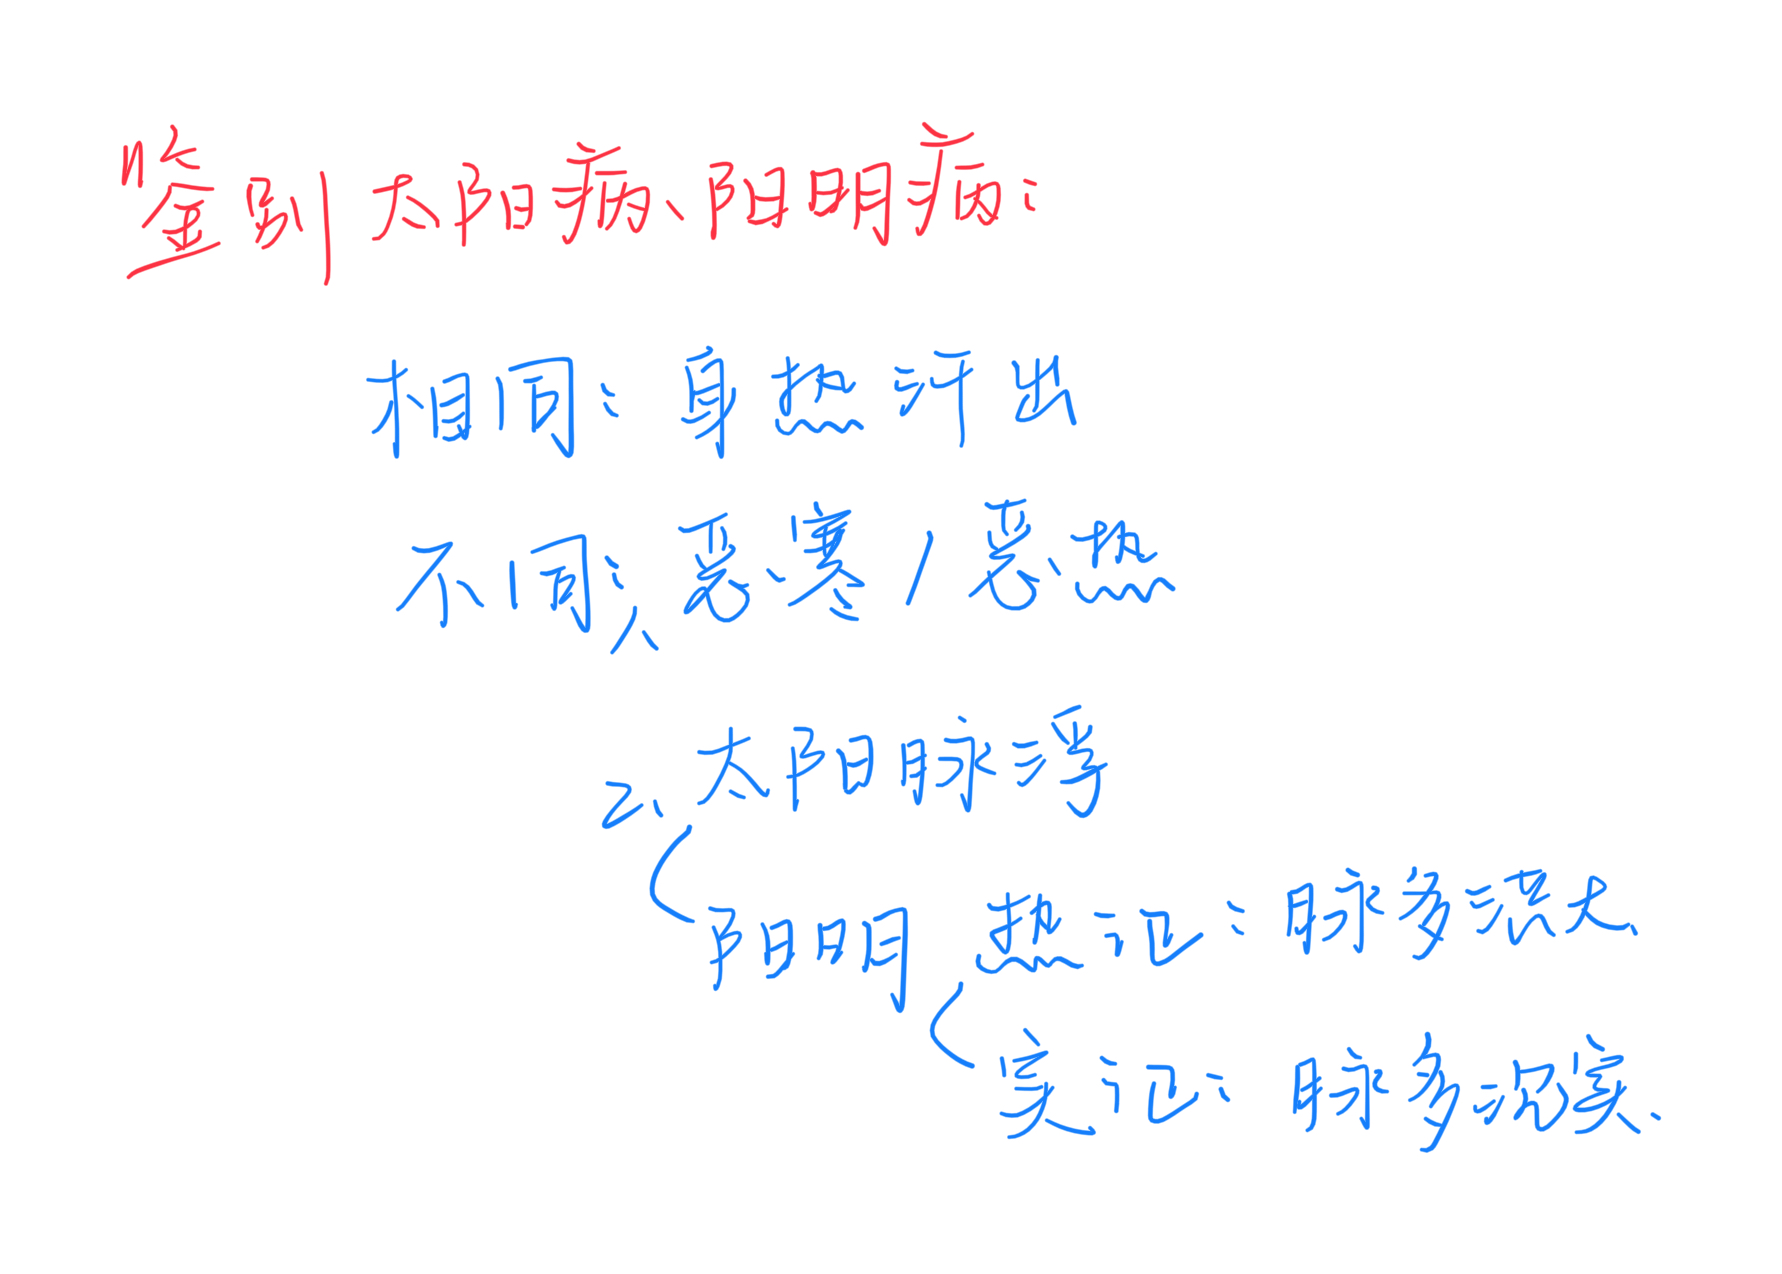 鉴别太阳病、阳明病：
相同：身热汗出
不同：1、恶寒/恶热
2、太阳脉浮
阳明 热证：脉多洪大、
实证：脉多沉实.